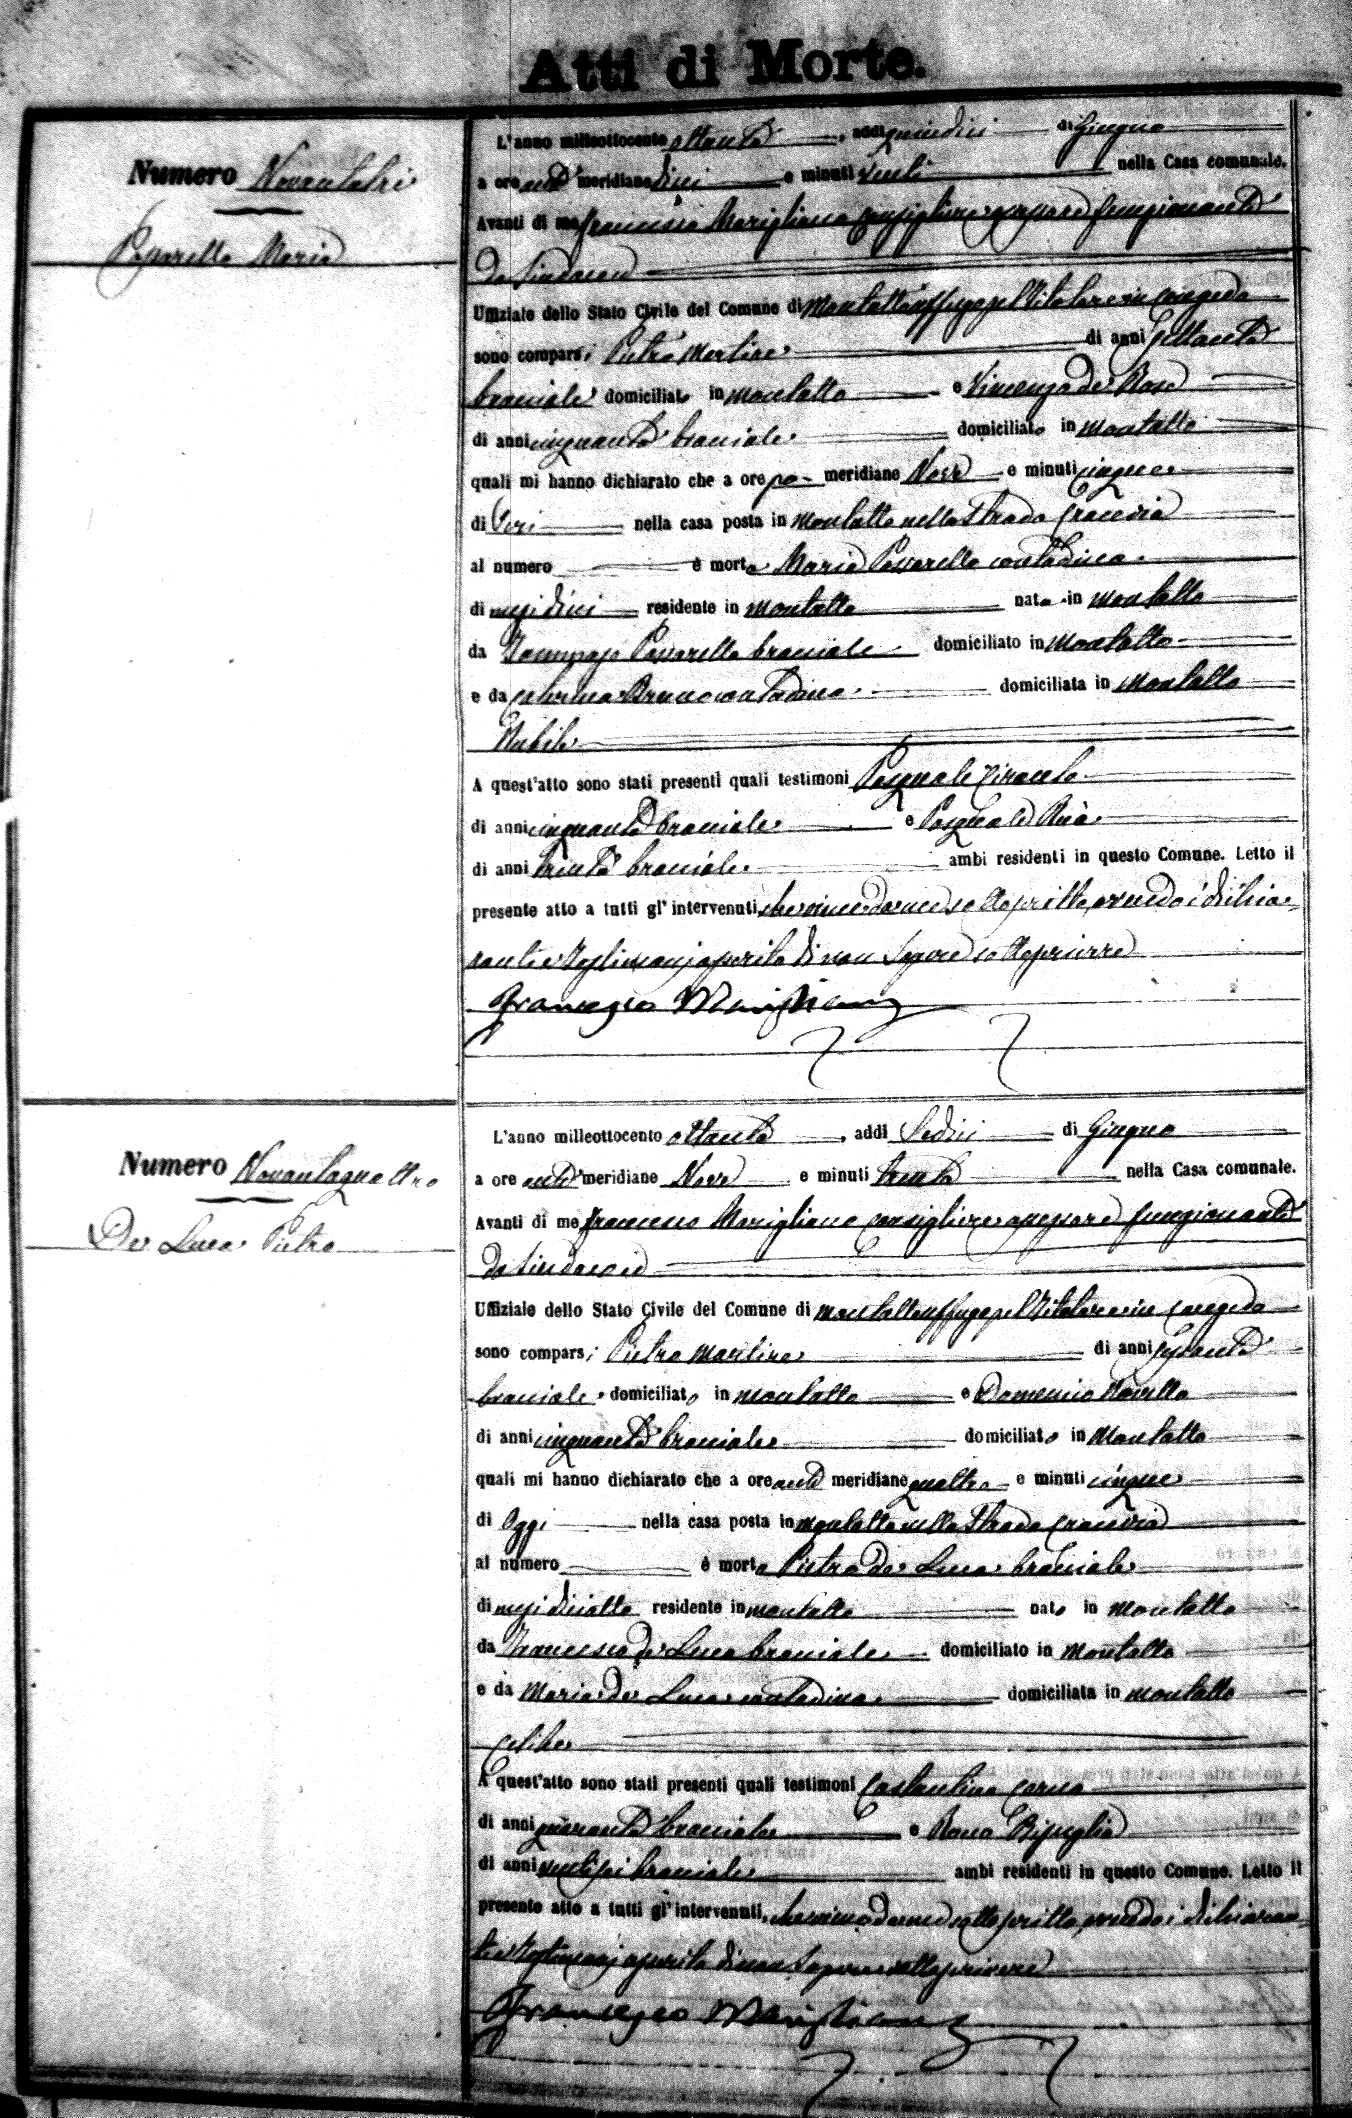 Atti di Morte.
Numero Novantatrè
Passarello Maria
L'anno milleottocento ottanta, addì quindici di Giugno
a ore anti meridiane dieci e minuti venti nella Casa comunale.
Avanti di me Francesco Marigliano Consigliere Assessore funzionante
da Sindaco
Uffiziale dello Stato Civile del Comune di Montalto Uffugo pel Titolare in congedo
sono comparsi Pietro Martire di anni
bracciale domiciliato in Montalto e Vincenzo de Rose
di anni cinquanta bracciale domiciliato in Montalto
quali mi hanno dichiarato che a ore po meridiane Nove e minuti cinque
di Ieri nella casa posta in Montalto nella Strada
al numero è morta Maria Passarello contadina
di mesi dieci residente in Montalto nata in Montalto
da Tommaso Passarello bracciale domiciliato in Montalto
e da Bruno contadina domiciliata in Montalto
Nubile
A quest'atto sono stati presenti quali testimoni Pasquale
di anni cinquanta bracciale e Pasquale
di anni trenta bracciale ambi residenti in questo Comune. Letto il
presente atto a tutti gl'intervenuti, viene da me sottoscritto, avendo i dichia-
ranti e testimonj asserito di non sapere sottoscrivere
Francesco Marigliano
Numero Novantaquattro
De Luca Pietro
L'anno milleottocento ottanta, addì Sedici di Giugno
a ore anti meridiane Nove e minuti trenta nella Casa comunale.
Avanti di me Francesco Marigliano Consigliere Assessore funzionante
da Sindaco
Uffiziale dello Stato Civile del Comune di Montalto Uffugo pel Titolare in congedo
sono comparsi Pietro Martire di anni
bracciale domiciliato in Montalto e Domenico
di anni cinquanta bracciale domiciliato in Montalto
quali mi hanno dichiarato che a ore anti meridiane quattro e minuti cinque
di Oggi nella casa posta in Montalto nella Strada
al numero è morto Pietro de Luca bracciale
di mesi diciotto residente in Montalto nato in Montalto
da Francesco de Luca bracciale domiciliato in Montalto
e da Maria de Luca contadina domiciliata in Montalto
Celibe
A quest'atto sono stati presenti quali testimoni Costantino
di anni quaranta bracciale e
di anni ventisei bracciale ambi residenti in questo Comune. Letto il
presente atto a tutti gl'intervenuti, viene da me sottoscritto, avendo i dichiaran-
ti e testimonj asserito di non sapere sottoscrivere
Francesco Marigliano